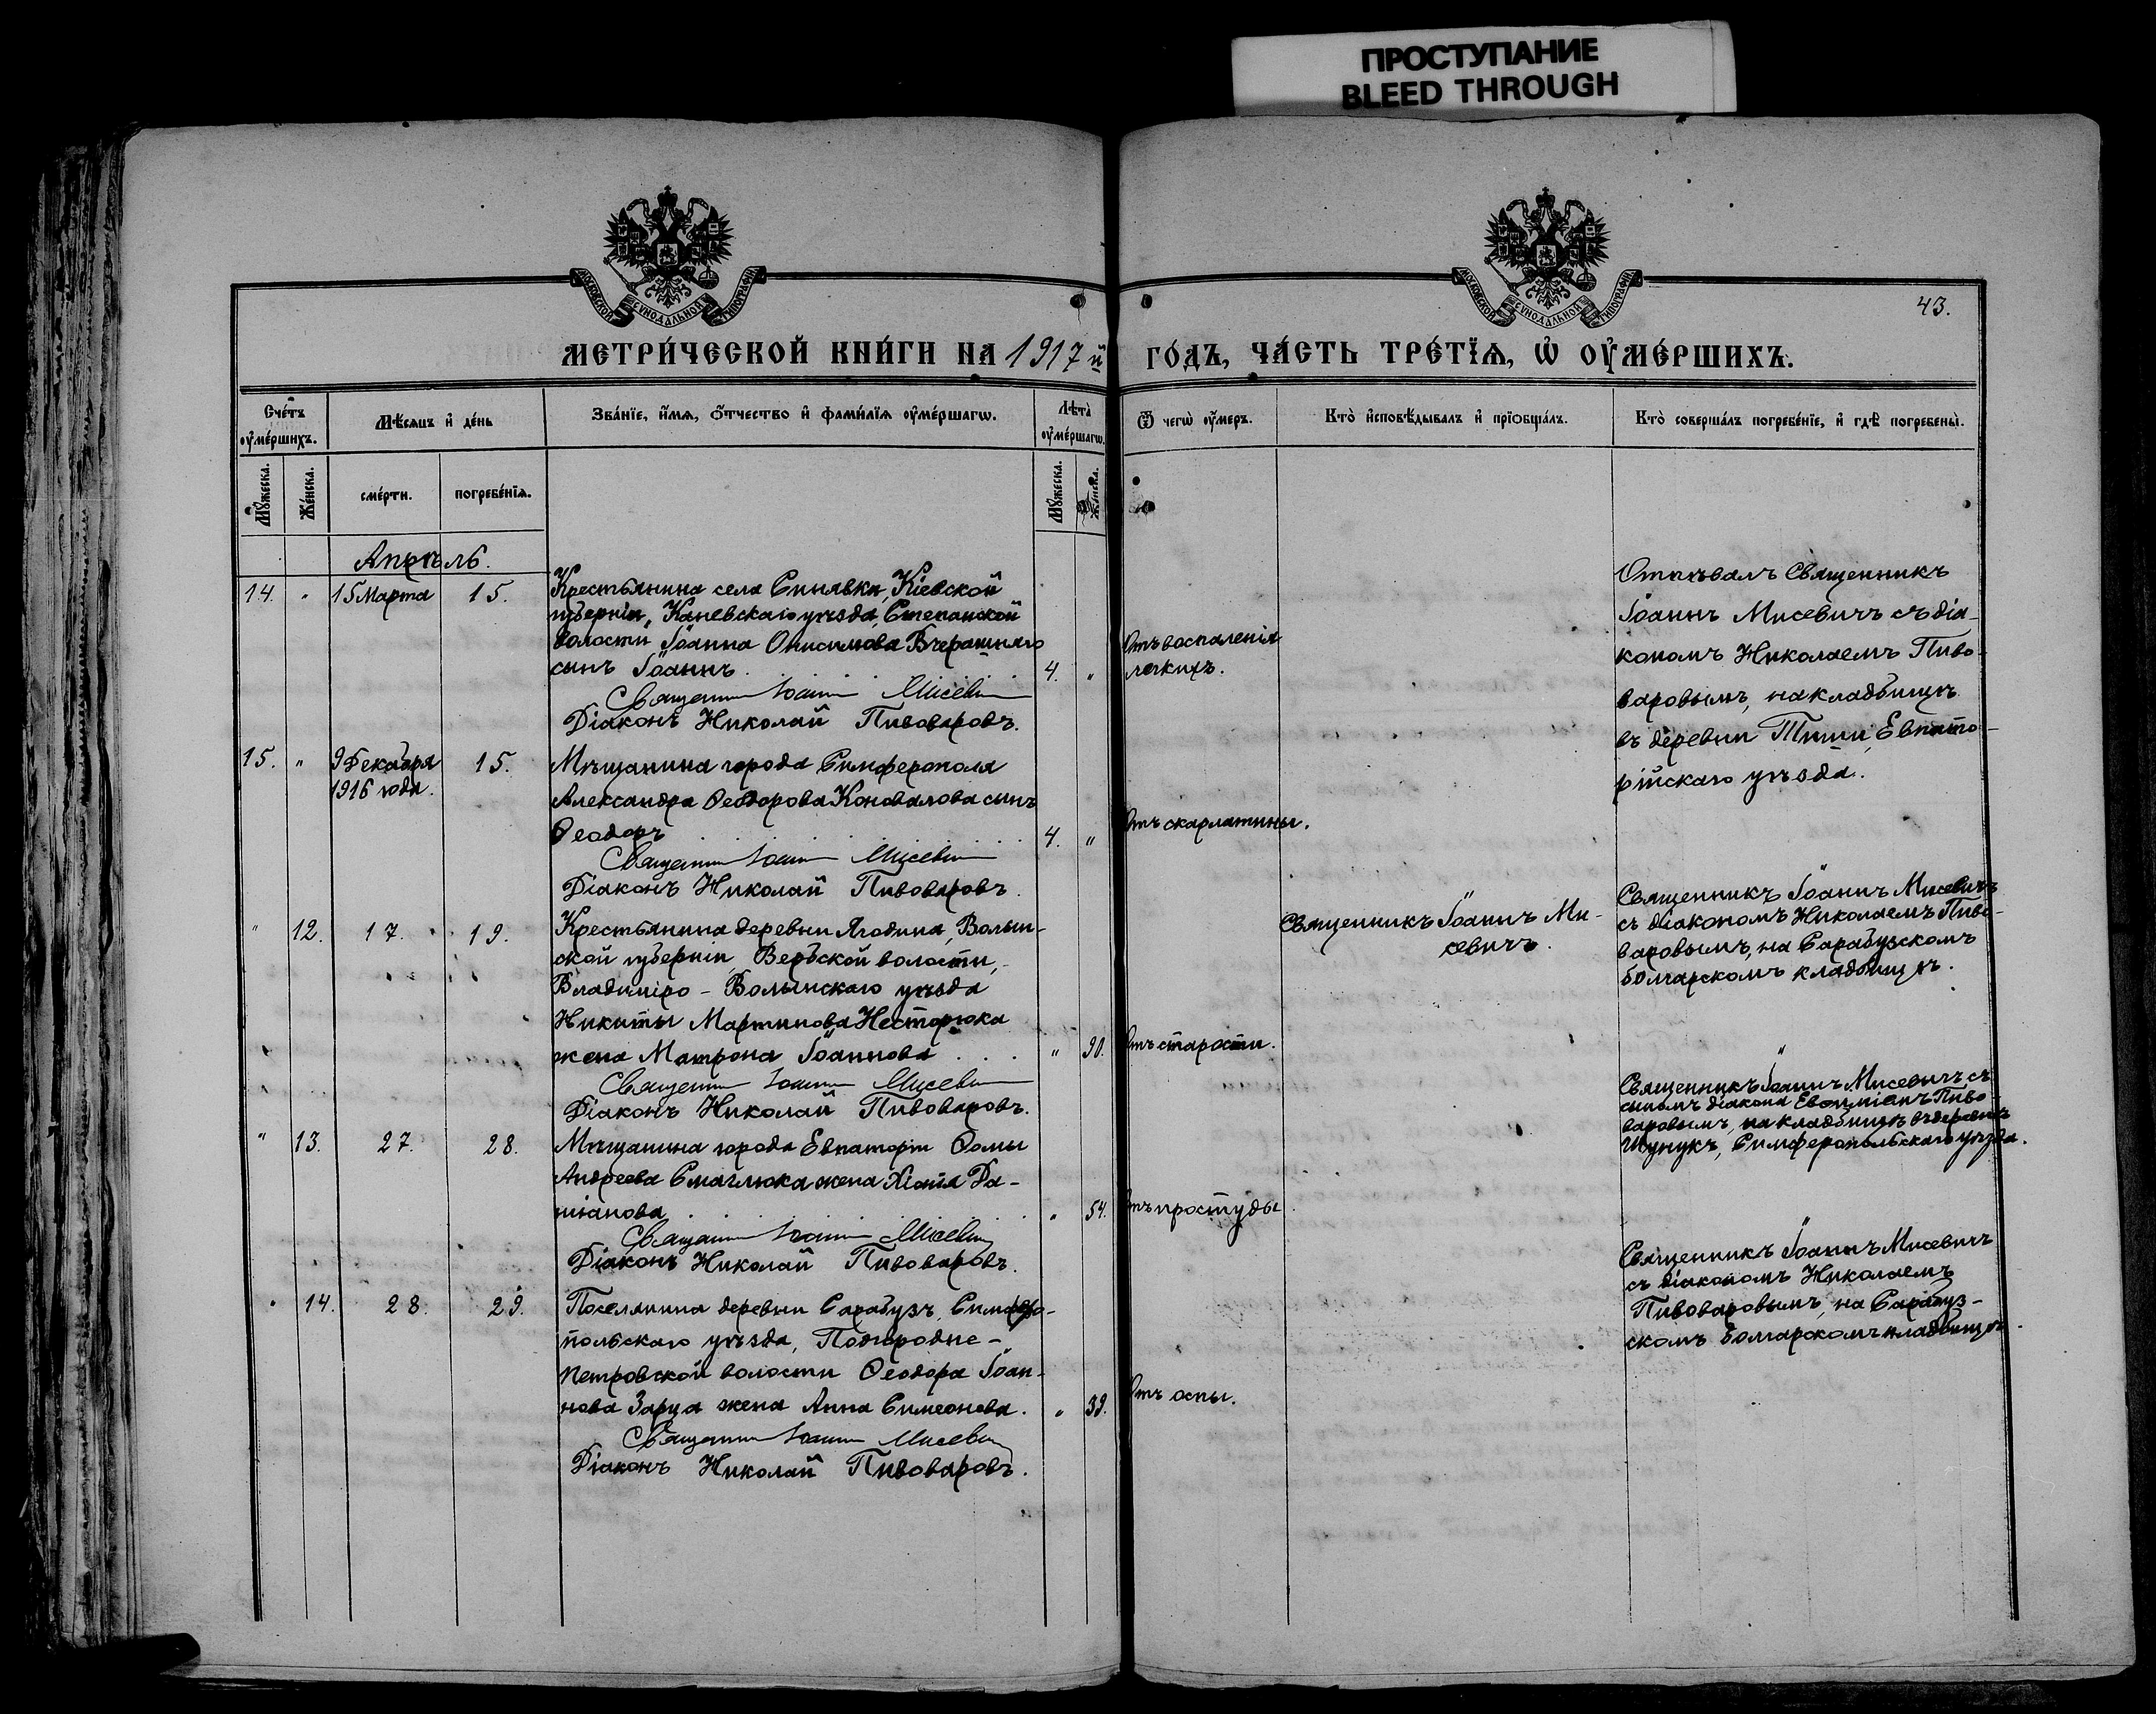 ПРОСТУПАНИЕ
BLEED THROUGH
МОСКОВСКОЙ СѴНОДАЛЬНОЙ ТИПОГРАФІИ
МОСКОВСКОЙ СѴНОДАЛЬНОЙ ТИПОГРАФІИ
43.
МЕТРИ́ЧЕСКОЙ КНИ́ГИ НА 1917 й ГО́ДЪ, ЧА́СТЬ ТРЕ́ТЇѦ, Ѡ҆ ОУ҆МЕ́РШИХЪ.
Сче́тъ оу҆ме́ршихъ.
Мѣ́сяцъ и҆ де́нь
Зва́нїе, и҆́мѧ, ѻ҆́тчество и҆ фами́лїѧ оу҆ме́ршагѡ.
Лѣ́та оу҆ме́ршагѡ.
Ѿ чегѡ̀ оу҆́меръ.
Кто̀ и҆сповѣ́дывалъ и҆ прїѡбща́лъ.
Кто̀ соверша́лъ погребе́нїе, и҆ гдѣ̀ погребены̀.
Мꙋ́жеска.
Же́нска.
сме́рти.
погребе́нїѧ.
Мꙋ́жеска.
Же́нска.
Апрѣль.
14. " 15 Марта 15.
Крестьянина села Синявки, Кіевской
губерніи, Каневскаго уѣзда, Степанской
волости Іоанна Онисимова Вчерашняго
сынъ Іоаннъ. 4. "
Священникъ Іоаннъ Мисевичъ
Діаконъ Николай Пивоваровъ.
Отъ воспаленія
легкихъ.
Отпѣвалъ Священникъ
Іоаннъ Мисевичъ съ діа-
кономъ Николаемъ Пиво-
варовымъ, на кладбищѣ
въ деревни Евпато-
рійскаго уѣзда.
15. " 9 Декабря 15.
1916 года.
Мѣщанина города Симферополя
Александра Ѳеодорова Коновалова сынъ
Ѳеодоръ 4. "
Священникъ Іоаннъ Мисевичъ
Діаконъ Николай Пивоваровъ.
Отъ скарлатины.
" 12. 17. 19.
Крестьянина деревни Ягодина, Волын-
ской губерніи, Вербской волости,
Владиміро-Волынскаго уѣзда
Никиты Мартинова Несторюка
жена Матрона Іоаннова . . . " 90.
Священникъ Іоаннъ Мисевичъ
Діаконъ Николай Пивоваровъ.
Отъ старости.
Священникъ Іоаннъ Ми-
севичъ.
Священникъ Іоаннъ Мисевичъ
съ діакономъ Николаемъ Пиво-
варовымъ, на Сарабузскомъ
болгарскомъ кладбищѣ.
" 13. 27. 28.
Мѣщанина города Евпаторіи Ѳомы
Андреева Смаглюка жена Хіонія Да-
" 54.
Священникъ Іоаннъ Мисевичъ
Діаконъ Николай Пивоваровъ.
Отъ простуды
Священникъ Іоаннъ Мисевичъ съ
сыномъ діакона Евѳиміемъ Пиво-
варовымъ, на кладбищѣ въ деревнѣ
Шунукъ, Симферопольскаго уѣзда.
" 14. 28. 29.
Поселянина деревни Сарабузъ, Симферо-
польскаго уѣзда, Подгородне-
Петровской волости Ѳеодора Іоан-
нова Зарца жена Анна Симеонова. " 39.
Священникъ Іоаннъ Мисевичъ
Діаконъ Николай Пивоваровъ.
Отъ оспы.
Священникъ Іоаннъ Мисевичъ
съ діакономъ Николаемъ
Пивоваровымъ, на Сарабуз-
скомъ болгарскомъ кладбищѣ.